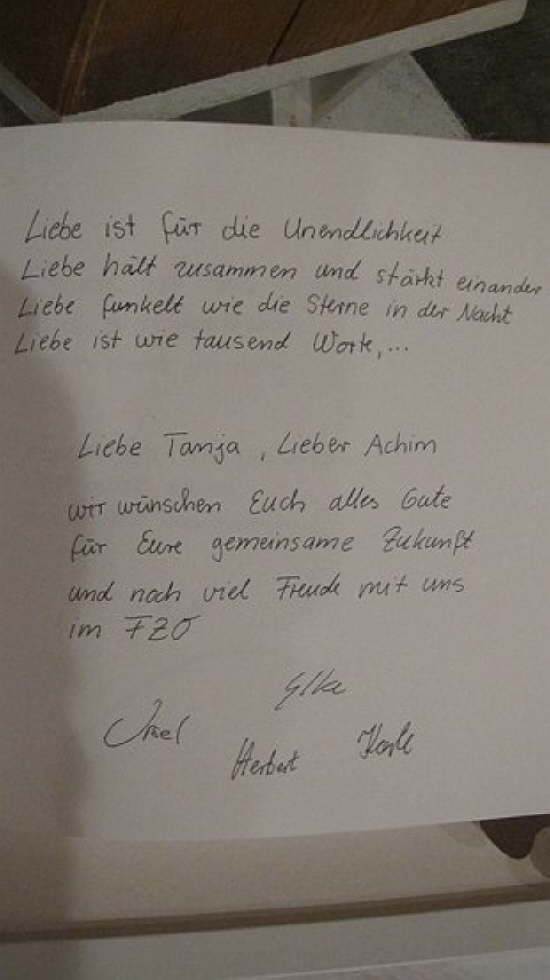 Liebe ist für die Unendlichkeit
Liebe hält zusammen und stärkt einander
Liebe funkelt wie die Sterne in der Nacht
Liebe ist wie tausend Worte,...
Liebe Tanja, Lieber Achim
wir wünschen Euch alles Gute
für Eure gemeinsame Zukunft
und noch viel Freude mit uns
im FZO
Elke
Herbert